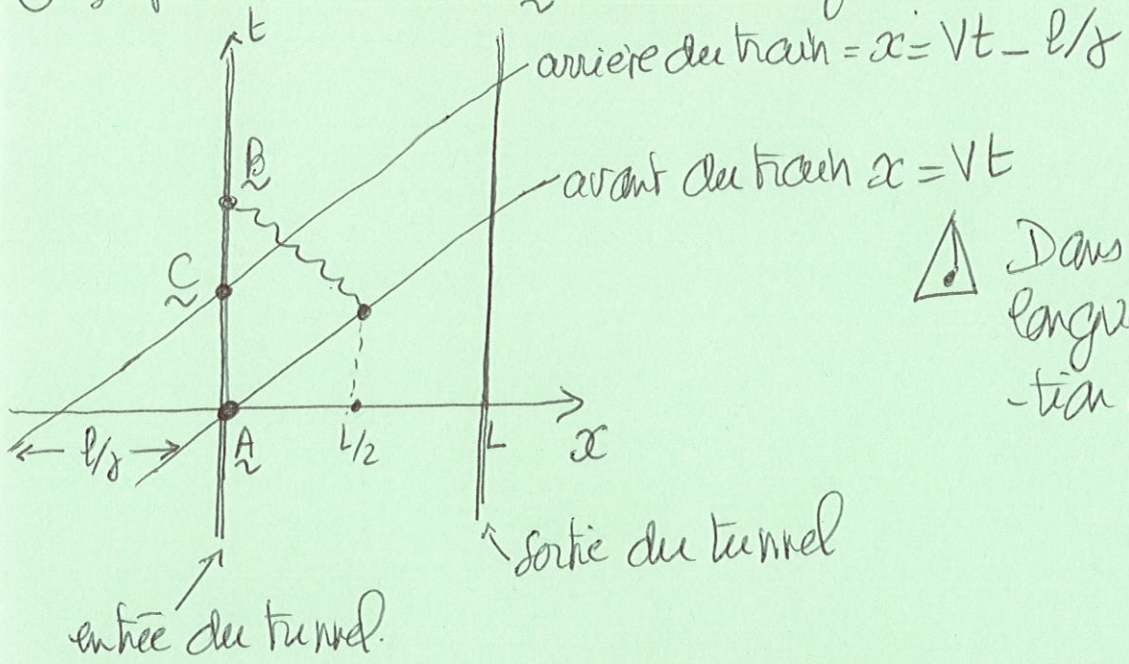 t
arrière du train = x = Vt - l/γ
B
avant du train x = Vt
C
⚠ Dans
longu
-tion
l/γ
A
L/2
L
x
sortie du tunnel
entrée du tunnel.